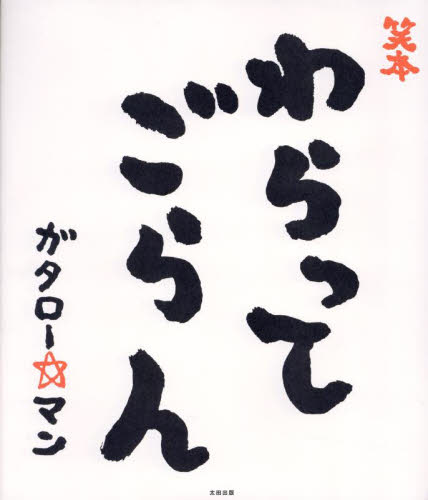 笑本
わらって
ごらん
ガタロー☆マン
太田出版